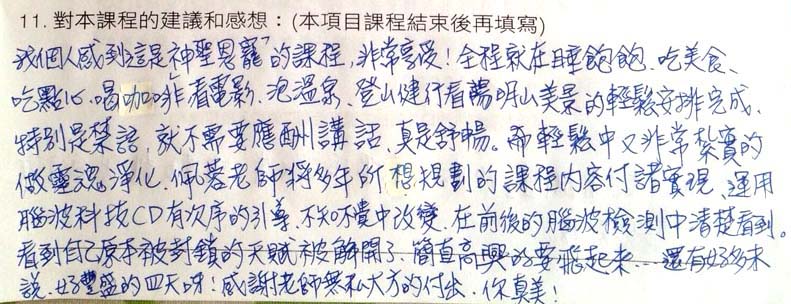 11. 對本課程的建議和感想：(本項目課程結束後再填寫)
我個人感到這是神聖恩寵"的課程,非常享受!全程就在睡飽飽、吃美食、
吃點心、喝咖啡、看電影、泡溫泉、登山健行看陽明山美景的輕鬆安排完成、
特別是禁語,就不需要應酬講話,真是舒暢。而輕鬆中又非常紮實的
做靈魂淨化,佩蓉老師將多年所想規劃的課程內容付諸實現、運用
腦波科技CD有次序的引導、不知不覺中改變、在前後的腦波檢測中清楚看到。
看到自己原本被封鎖的天賦被解開了、簡直高興的要飛起來…還有好多未
說、好豐盛的四天呀!感謝老師無私大方的付出、你真美!